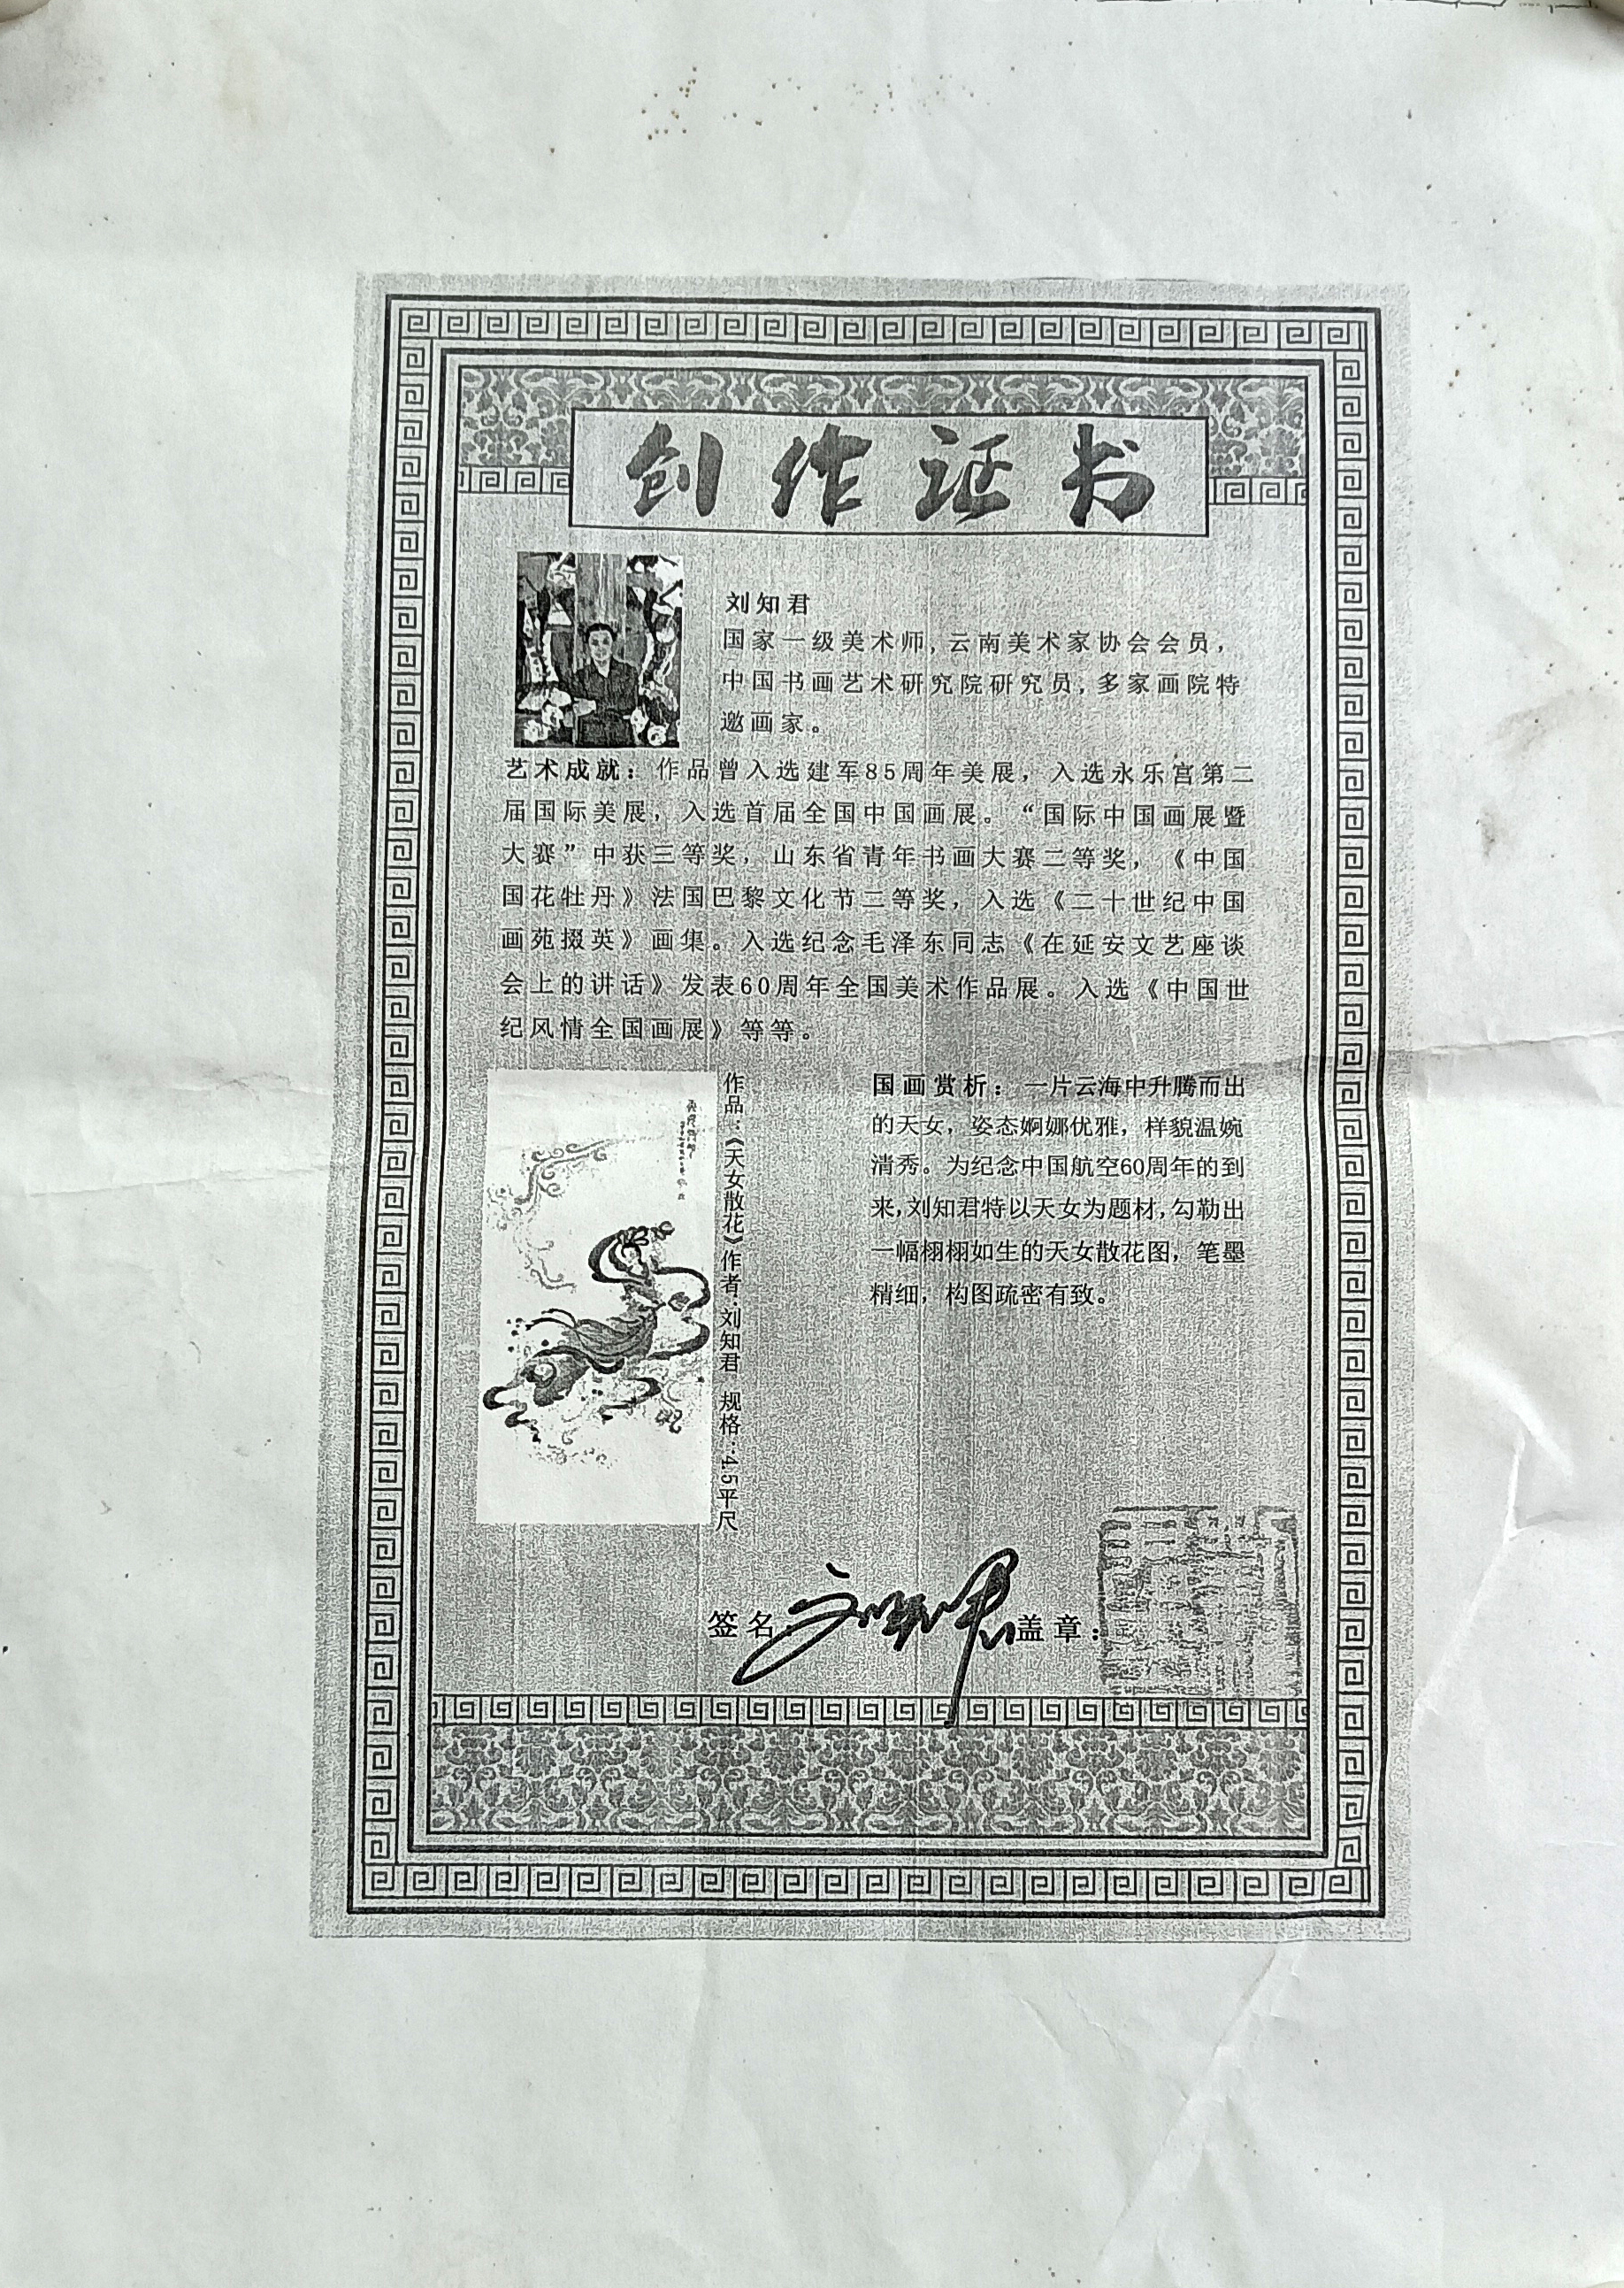 创作证书
刘知君
国家一级美术师,云南美术家协会会员,
中国书画艺术研究院研究员,多家画院特
邀画家。
艺术成就：作品曾入选建军85周年美展，入选永乐宫第二
届国际美展，入选首届全国中国画展。“国际中国画展暨
大赛”中获三等奖，山东省青年书画大赛二等奖，《中国
国花牡丹》法国巴黎文化节三等奖，入选《二十世纪中国
画苑掇英》画集。入选纪念毛泽东同志《在延安文艺座谈
会上的讲话》发表60周年全国美术作品展。入选《中国世
纪风情全国画展》等等。
作品：《天女散花》作者：刘知君 规格：4.5平尺
国画赏析：一片云海中升腾而出
的天女，姿态婀娜优雅，样貌温婉
清秀。为纪念中国航空60周年的到
来,刘知君特以天女为题材,勾勒出
一幅栩栩如生的天女散花图，笔墨
精细，构图疏密有致。
签名：刘知君 盖章：